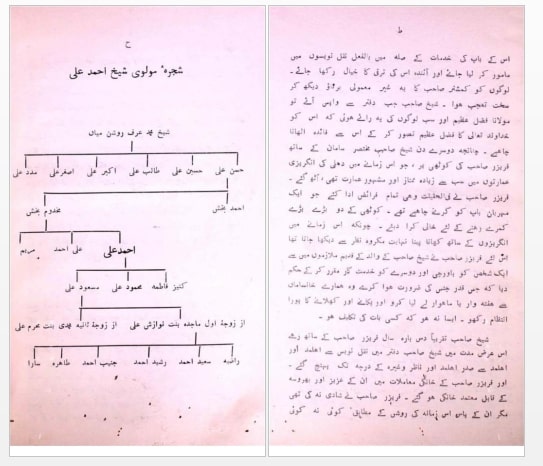 ح
شجرہ مولوی شیخ احمد علی
شیخ محمد عرف روشن میاں
حسن علی حسین علی طالب علی اکبر علی اصغر علی مدد علی
احمد بخش مخدوم بخش
احمد علی علی احمد مریم
کنیز فاطمہ محمود علی مسعود علی
از زوجۂ اول ماجدہ بنت نوازش علی از زوجۂ ثانیہ محمدی بنت محرم علی
راضیہ سعید احمد رشید احمد جنیب احمد طاہرہ سارا
ط
اس کے باپ کی خدمات کے صلہ میں بالفعل نقل نویسوں میں
مامور کر لیا جائے اور آئندہ اس کی ترقی کا خیال رکھا جائے۔
لوگوں کو کمشنر صاحب کا یہ غیر معمولی برتاؤ دیکھ کر
سخت تعجب ہوا۔ شیخ صاحب جب دفتر سے واپس آئے تو
مولانا فضل عظیم اور سب لوگوں کی یہ رائے ہوئی کہ اس کو
خداوند تعالیٰ کا فضل عظیم تصور کر کے اس سے فائدہ اٹھانا
چاہیے۔ چنانچہ دوسرے دن شیخ صاحب مختصر سامان کے ساتھ
فریزر صاحب کی کوٹھی پر، جو اس زمانے میں دہلی کی انگریزی
عمارتوں میں سب سے زیادہ ممتاز اور مشہور عمارت تھی، اٹھ گئے۔
فریزر صاحب نے فی الحقیقت وہی تمام فرائض ادا کئے جو ایک
مہربان باپ کو کرنے چاہیے تھے۔ کوٹھی کے دو بڑے بڑے
کمرے رہنے کے لئے خالی کرا دیے۔ چونکہ اس زمانے میں
انگریزوں کے ساتھ کھانا پینا نہایت مکروہ نظر سے دیکھا جاتا تھا
اس لئے فریزر صاحب نے شیخ صاحب کے والد کے قدیم ملازموں میں سے
ایک شخص کو باورچی اور دوسرے کو خدمت گار مقرر کر کے حکم
دیا کہ جس قدر جنس کی ضرورت ہوا کرے وہ ہمارے خانساماں
سے ہفتہ وار یا ماہوار لے لیا کرو اور پکانے اور کھلانے کا پورا
انتظام رکھو۔ ایسا نہ ہو کہ کسی بات کی تکلیف ہو۔
شیخ صاحب تقریباً دس بارہ سال فریزر صاحب کے ساتھ رہے
اس عرض مدت میں شیخ صاحب دفتر میں نقل نویس سے اہلمد اور
اہلمد سے صدر اہلمد اور ناظر وغیرہ کے درجہ تک پہنچ گئے۔
اور فریزر صاحب کے خانگی معاملات میں ان کے عزیز اور بھروسہ
کے قابل معتمد خانگی ہو گئے۔ فریزر صاحب نے شادی نہ کی تھی
مگر ان کے پاس اس زمانہ کی روش کے مطابق کوئی نہ کوئی